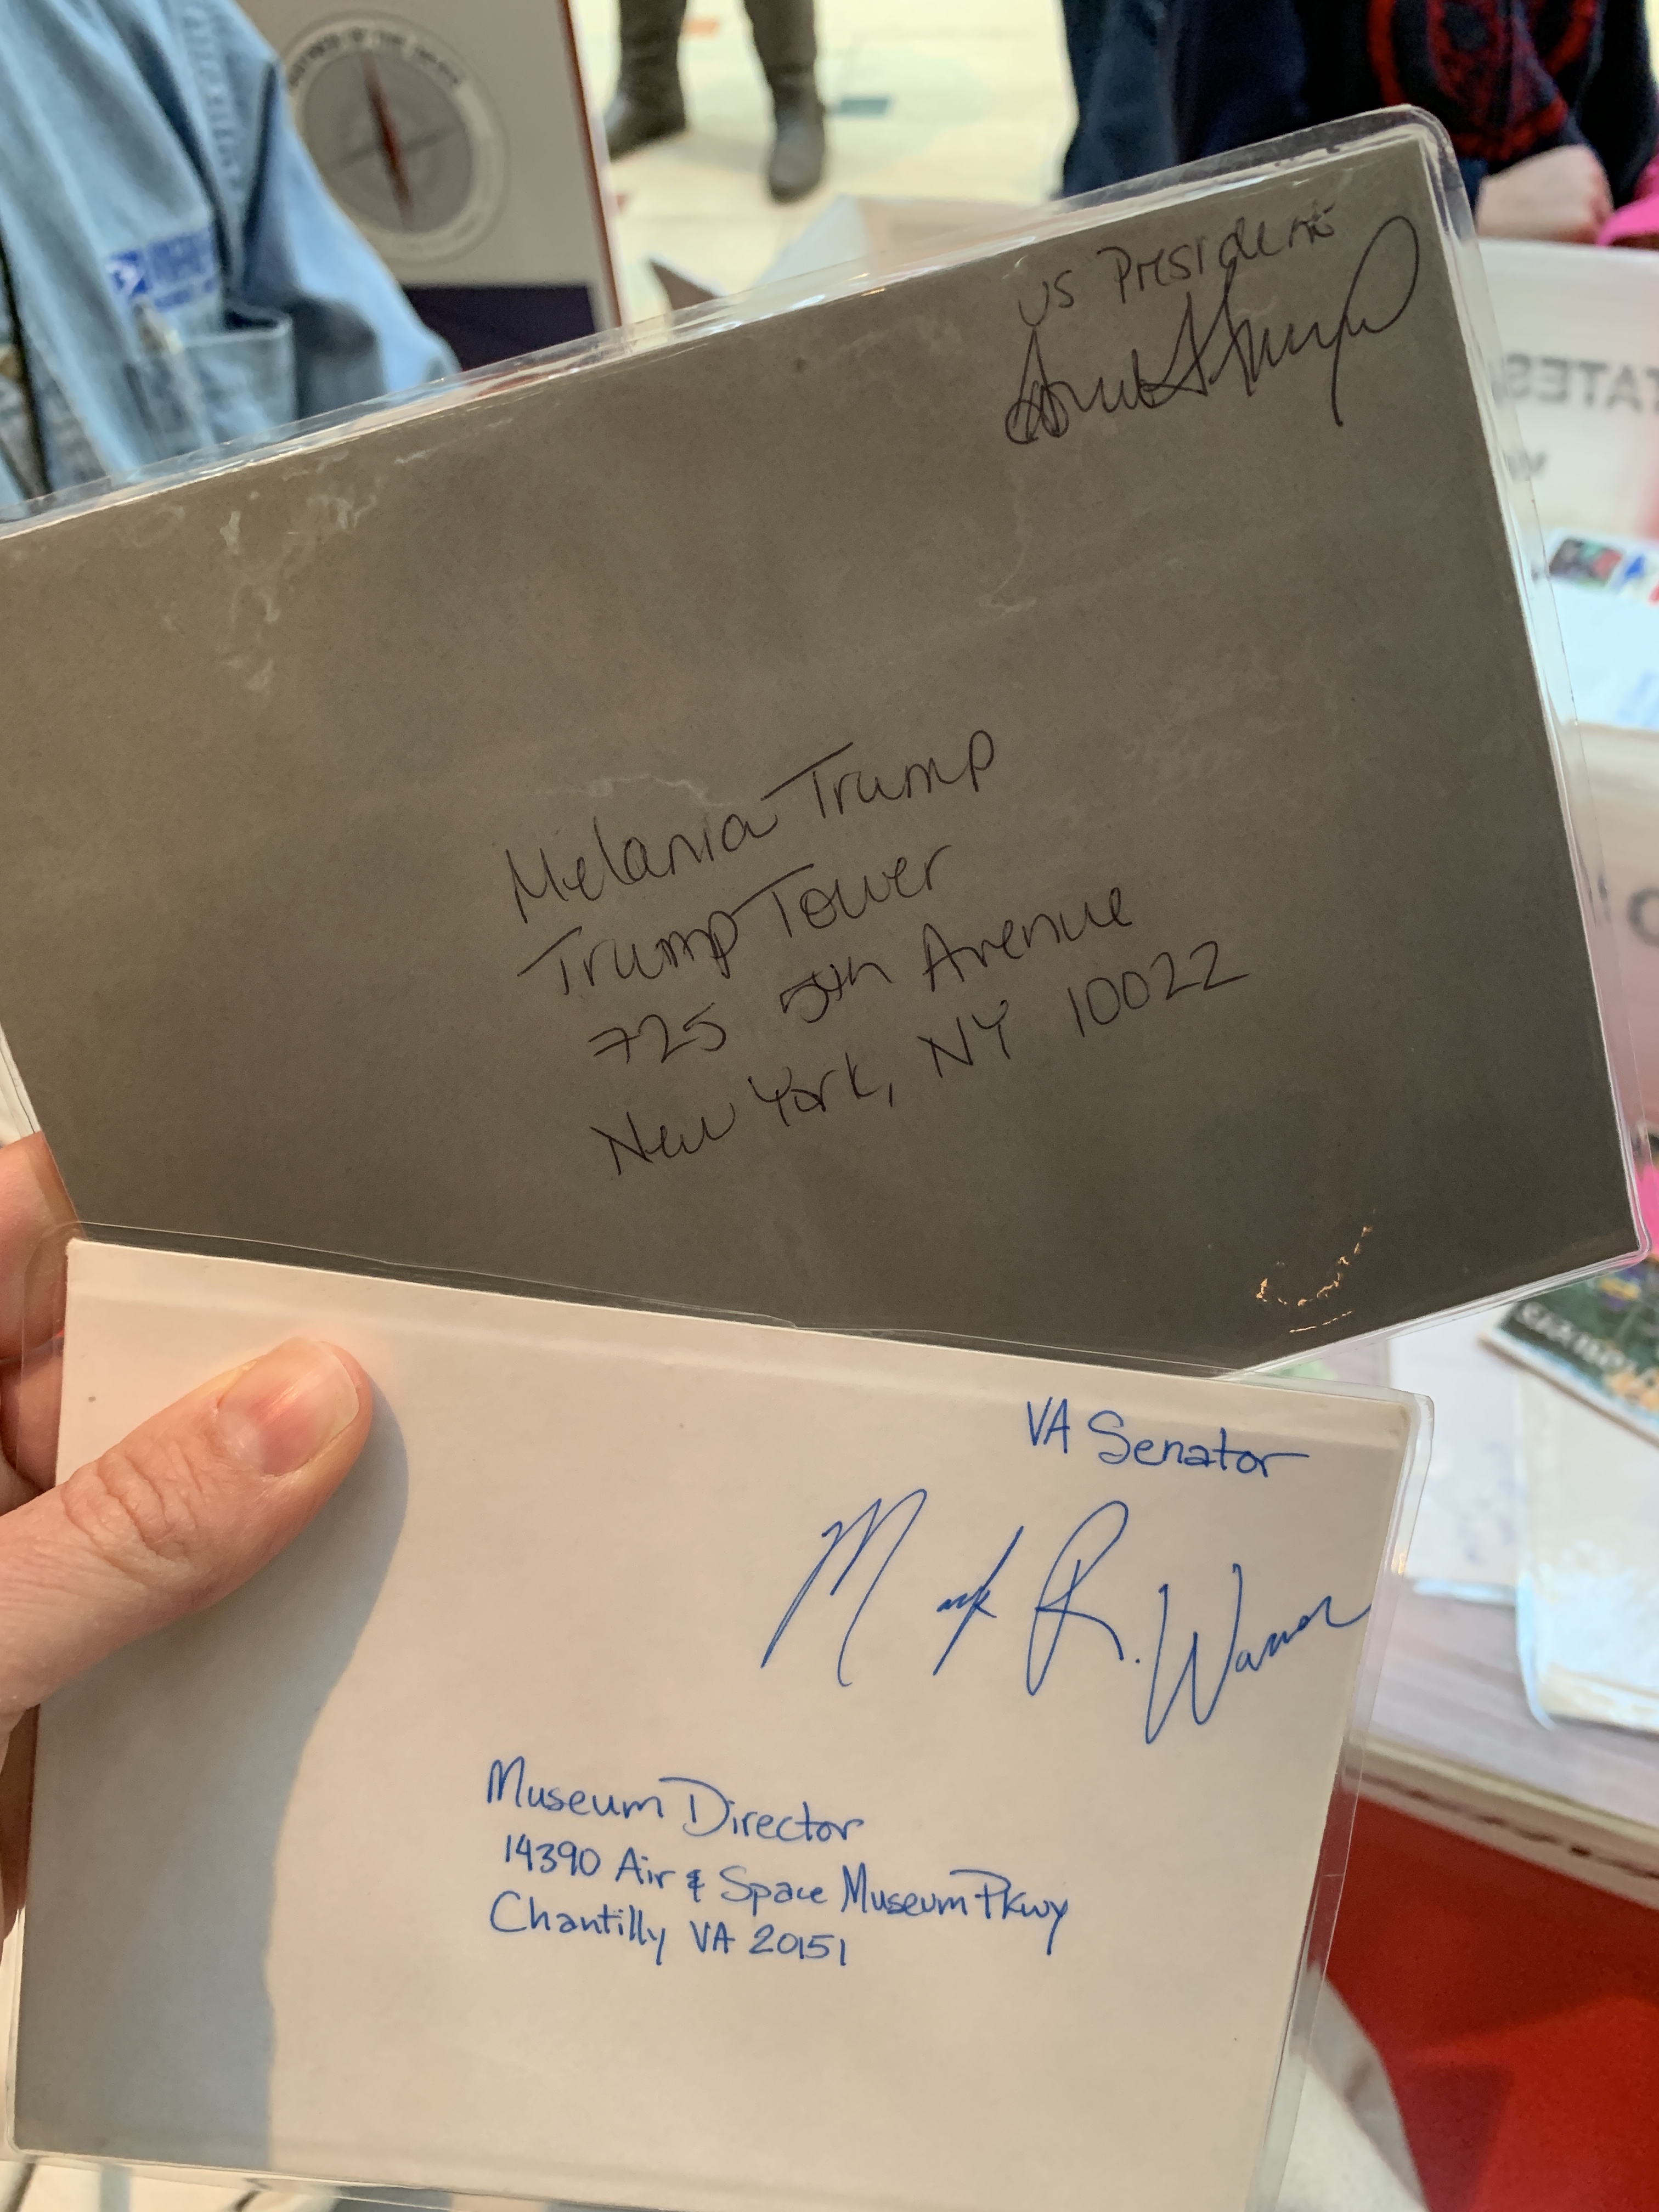 US President
Melania Trump
Trump Tower
725 5th Avenue
New York, NY 10022
VA Senator
Mark R. Warner
Museum Director
14390 Air & Space Museum Pkwy
Chantilly VA 20151
TATES